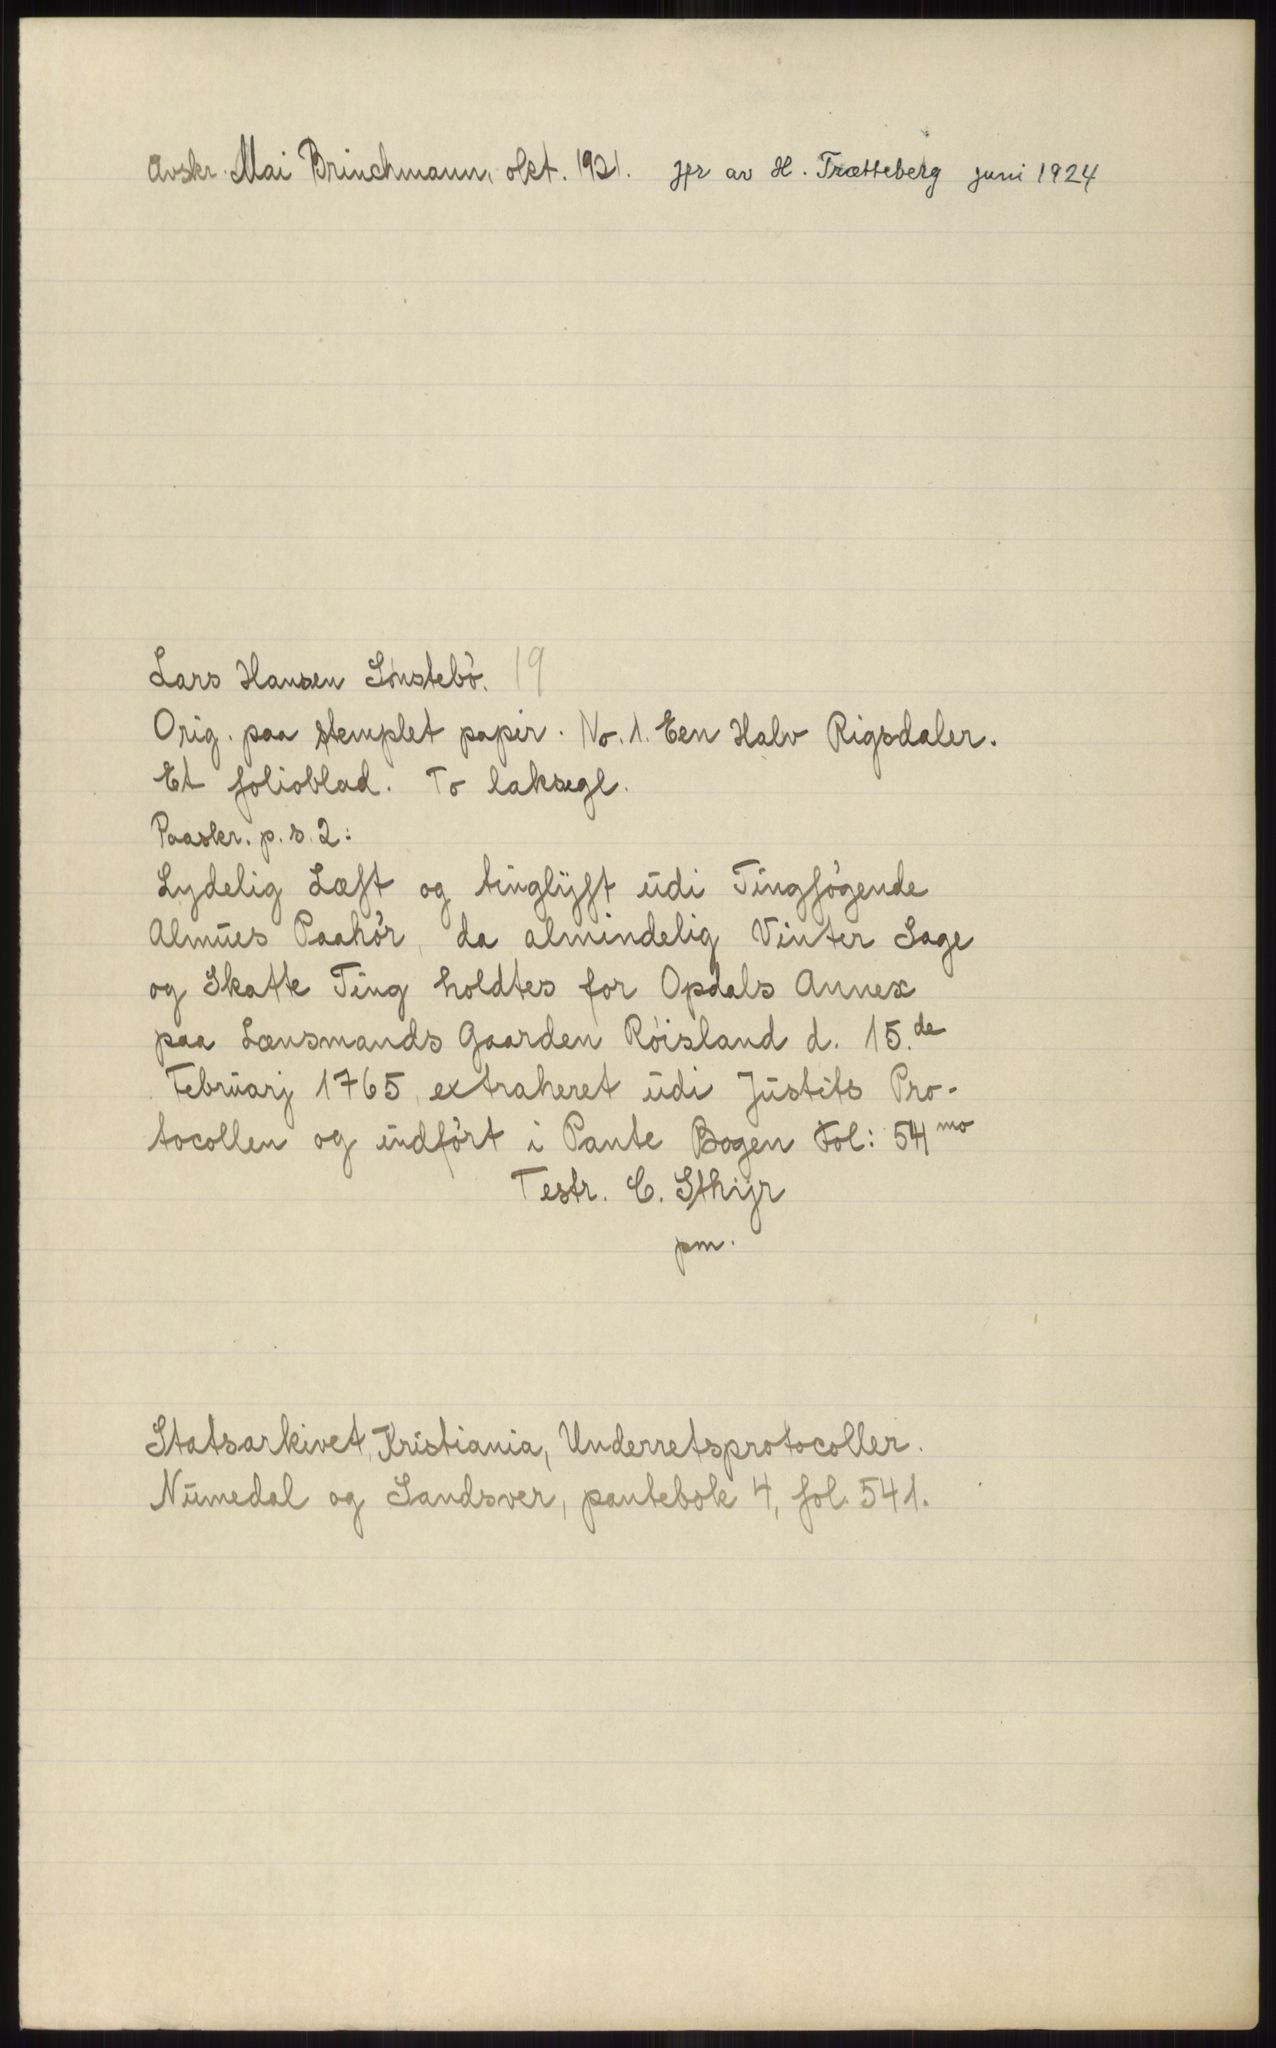 Avskr. Mai Brinchmann, okt. 1921. jfr av H. Trætteberg juni 1924
Lars Hansen Sönstebö. 19
Orig. paa stemplet papir. No. 1. Een Halv Rigsdaler.
Et folioblad. To laksegl.
Paaskr. p. s. 2:
Lydelig Læst og tinglÿst ŭdi Tingsögende
Almŭes Paahör, da almindelig Vinter Sage
og Skatte Ting holdtes for Opdals Annex
paa Lænsmands Gaarden Röisland d. 15.de
Febrŭarj 1765, extraheret ŭdi Jŭstits Pro-
tocollen og indfört i Pante Bogen Fol: 541mo
Testr. C. Sthijr
pm.
Statsarkivet, Kristiania, Underretsprotocoller.
Nŭmedal og Sandsver, pantebok 4, fol. 541.